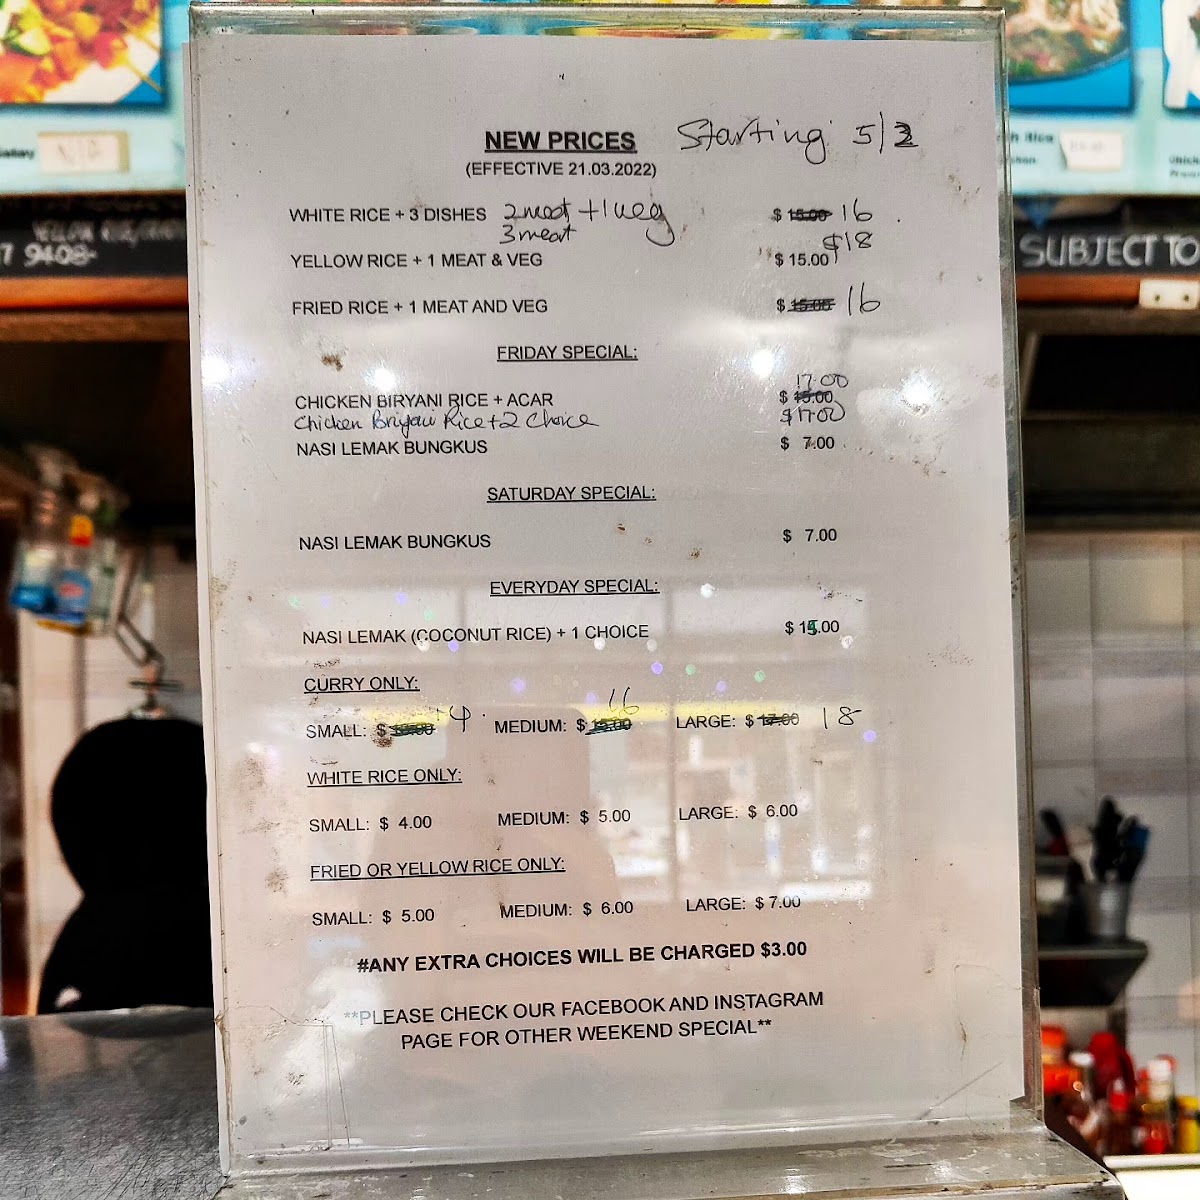 NEW PRICES Starting 5/3
(EFFECTIVE 21.03.2022)
WHITE RICE + 3 DISHES 2 meat + 1 veg $ 15.00 16
3 meat $18
YELLOW RICE + 1 MEAT & VEG $ 15.00
FRIED RICE + 1 MEAT AND VEG $ 15.00 16
FRIDAY SPECIAL:
17.00
CHICKEN BIRYANI RICE + ACAR $ 15.00
Chicken Briyani Rice + 2 Choice $17.00
NASI LEMAK BUNGKUS $ 7.00
SATURDAY SPECIAL:
NASI LEMAK BUNGKUS $ 7.00
EVERYDAY SPECIAL:
NASI LEMAK (COCONUT RICE) + 1 CHOICE $ 15.00
CURRY ONLY:
SMALL: $ 14 MEDIUM: $ 16 LARGE: $ 17.00 18
WHITE RICE ONLY:
SMALL: $ 4.00 MEDIUM: $ 5.00 LARGE: $ 6.00
FRIED OR YELLOW RICE ONLY:
SMALL: $ 5.00 MEDIUM: $ 6.00 LARGE: $ 7.00
#ANY EXTRA CHOICES WILL BE CHARGED $3.00
**PLEASE CHECK OUR FACEBOOK AND INSTAGRAM
PAGE FOR OTHER WEEKEND SPECIAL**
SUBJECT TO